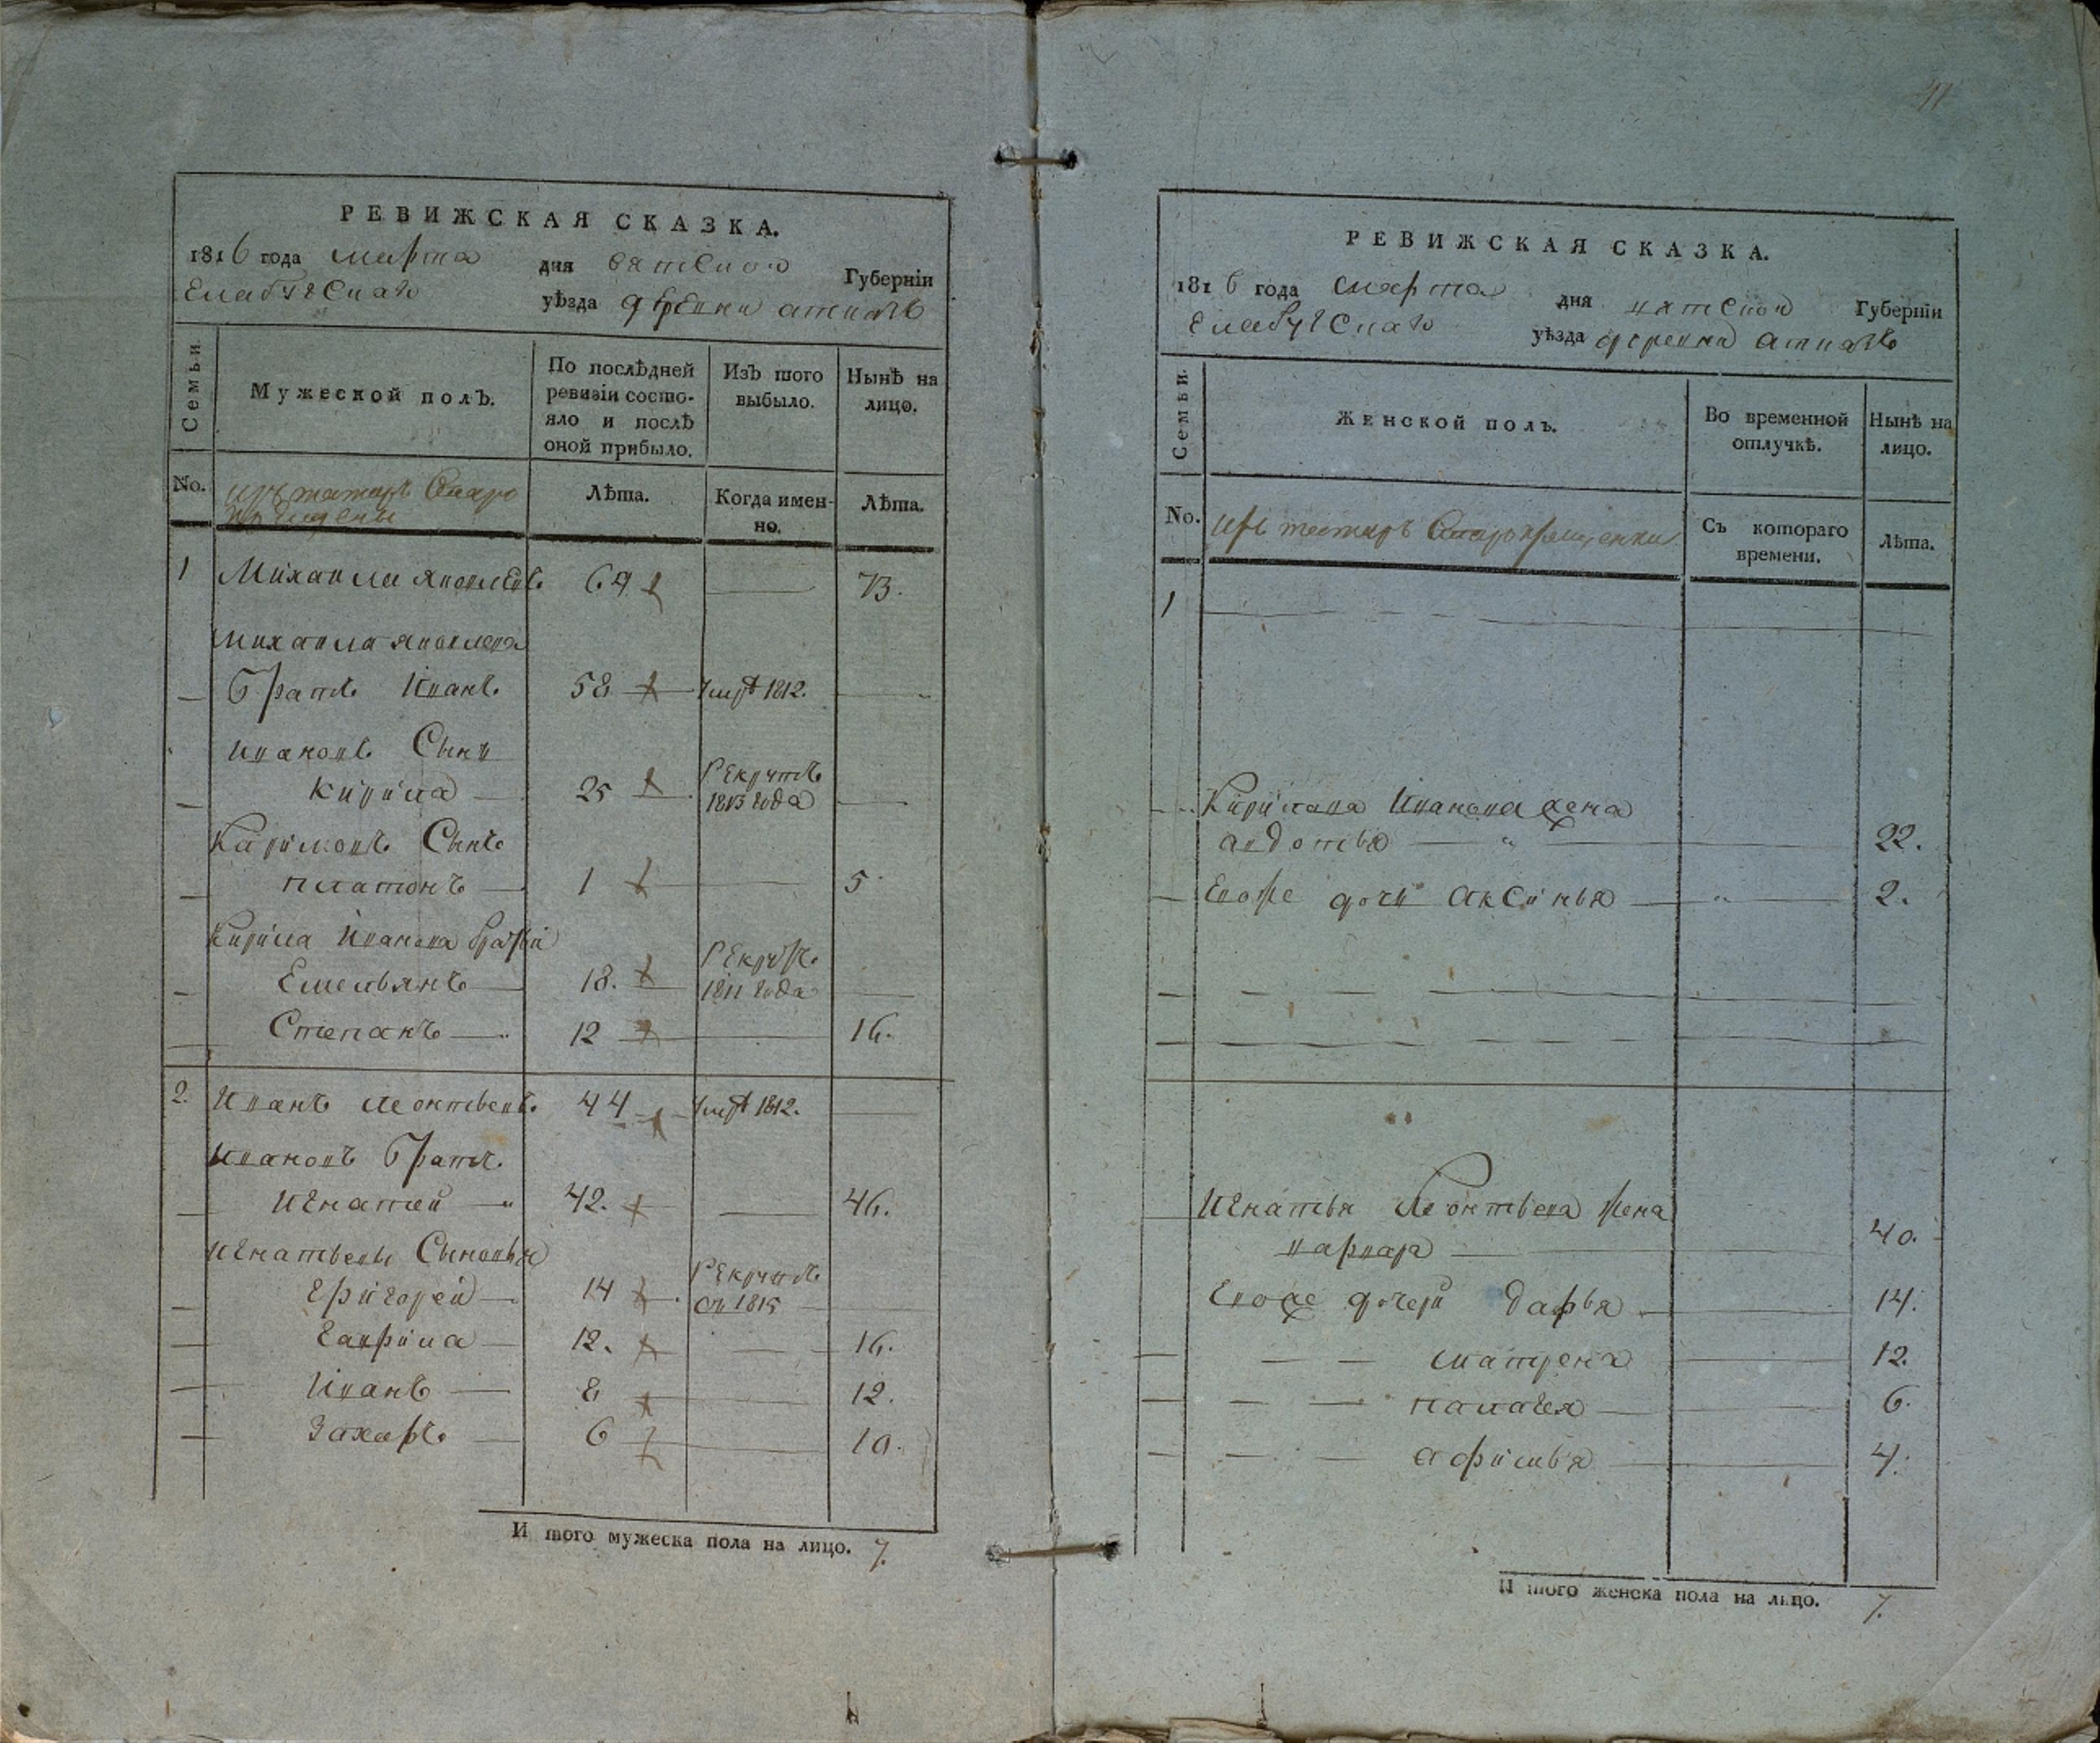 РЕВИЖСКАЯ СКАЗКА.
1816 года марта дня вятской Губернїи
Елабужскаго уѣзда деревни
Семьи.
Мужеской полъ.
По послѣдней ревизіи состояло и послѣ оной прибыло.
Изъ того выбыло.
Нынѣ на лицо.
No.
изъ татаръ Старо
крещены
Лѣта.
Когда именно.
Лѣта.
1 Михаила Яковлевъ 69 73.
Михаила Яковлева
братъ Иванъ 58 умре 1812.
Ивановъ Сынъ
Кирила 25 рекрутъ 1813 года
Кириловъ Сынъ
Платонъ 1 5
Кирила Иванова братьи
Емельянъ 18. рекрутъ 1811 года
Степанъ 12 16.
2. Иванъ Леонтьевъ 44 умре 1812.
Ивановъ братъ
Игнатей 42. 46.
Игнатьевы Сыновья
Григорей 14 рекрутъ въ 1815
Гаврила 12. 16.
Иванъ 8 12.
Захаръ 6 10.
И того мужеска пола на лицо. 7.
РЕВИЖСКАЯ СКАЗКА.
1816 года марта дня вятской Губернїи
Елабужскаго уѣзда деревни
Семьи.
Женской полъ.
Во временной отлучкѣ.
Нынѣ на лицо.
No.
изъ татаръ Старокрещенки
Съ котораго времени.
Лѣта.
1
Кирилава Иванова жена
авдотья 22.
Евоже дочи Аксинья 2.
Игнатья Леонтьева жена
варвара 40.
Евоже дочери дарья 14.
матрена 12.
палагея 6.
афимья 4.
И того женска пола на лицо. 7.